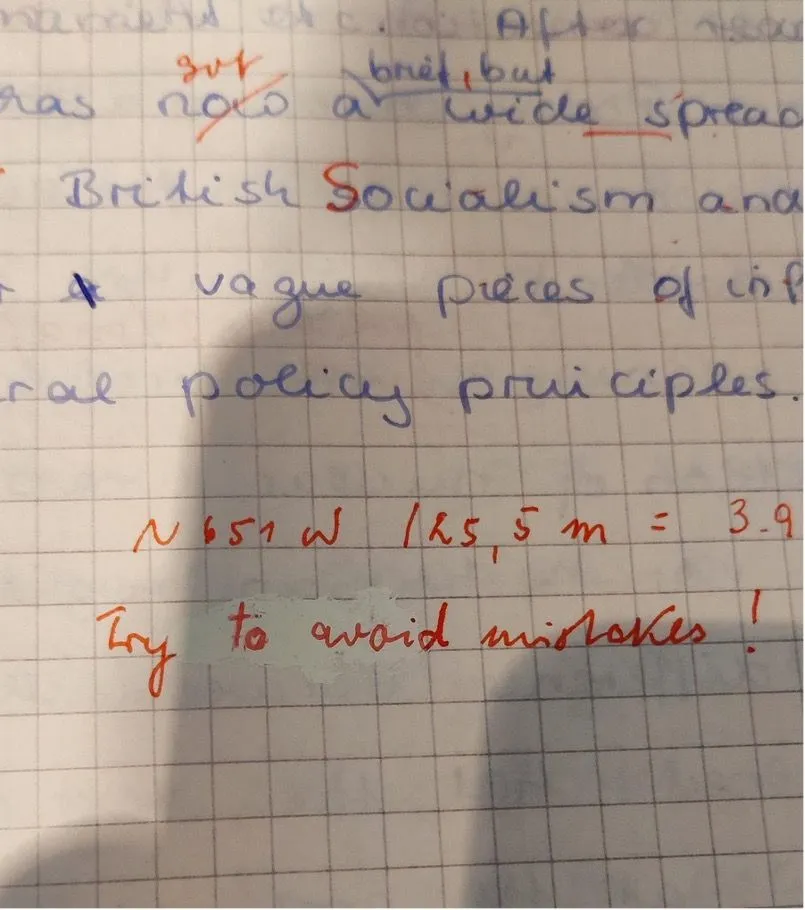 After
got brief, but
has now a wide spread
British Socialism and
vague pieces of inf
ral policy principles.
~ 651 W /25,5 m = 3.9
Try to avoid mistakes!